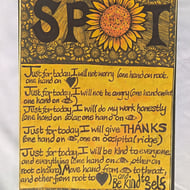 SPOT
Just for today I will not worry (one hand on root.
one hand on
Just for today I will not be angry (one hand on
one hand on
Just for today I will do my work honestly
(one hand on solar, one hand on
Just for today I will give THANKS
(one hand on one on occipital ridge)
Just for today I will be kind to everyone
and everything (one hand on other on
root chakra) Move hand from to throat,
and other from root to
Be Kind to Self